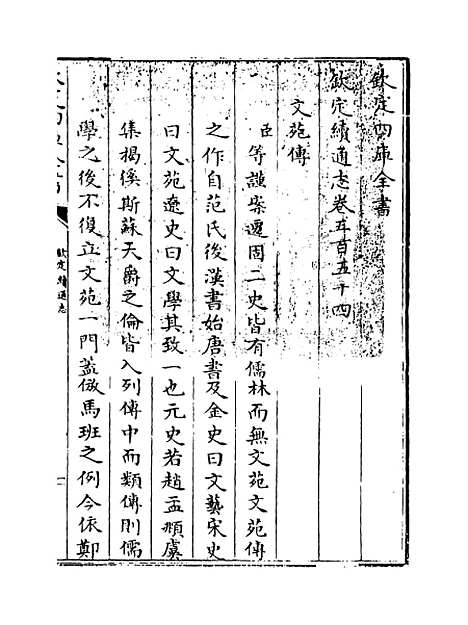 欽定四庫全書
欽定續通志卷五百五十四
文苑傳
臣等謹案遷固二史皆有儒林而無文苑文苑傳
之作自范氏後漢書始唐書及金史曰文藝宋史
曰文苑遼史曰文學其致一也元史若趙孟頫虞
集揭傒斯蘇天爵之倫皆入列傳中而類傳則儒
學之後不復立文苑一門蓋倣馬班之例今依鄭
欽定續通志
一